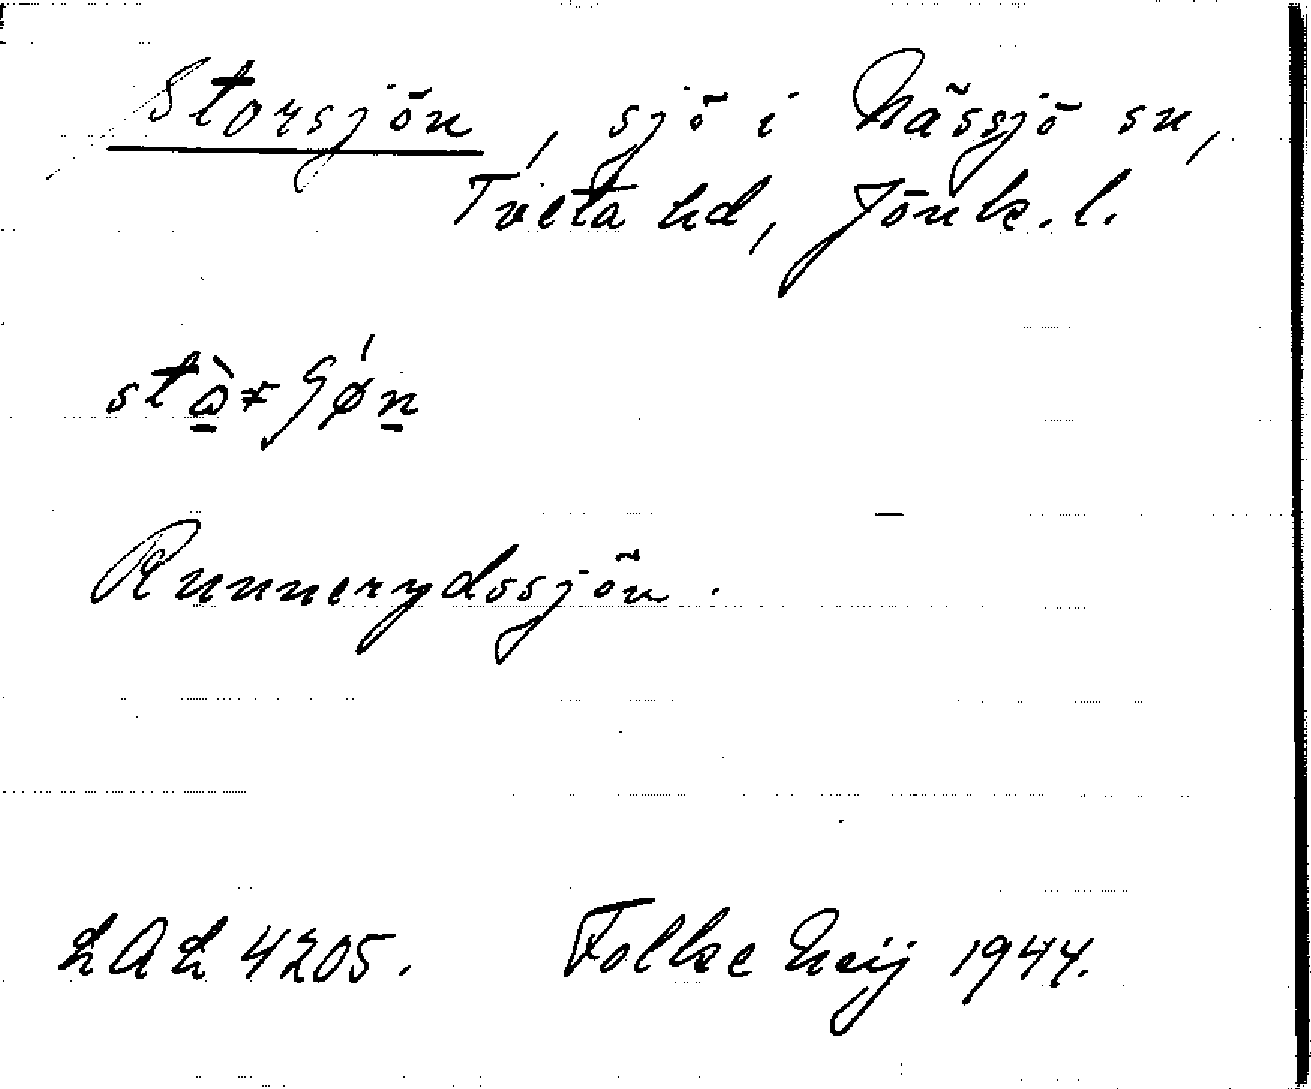 Storsjön, sjö i Nässjö sn,
Tveta hd, Jönk. l.
Runnerydssjön.
LAL 4205. Folke Neij 1944.